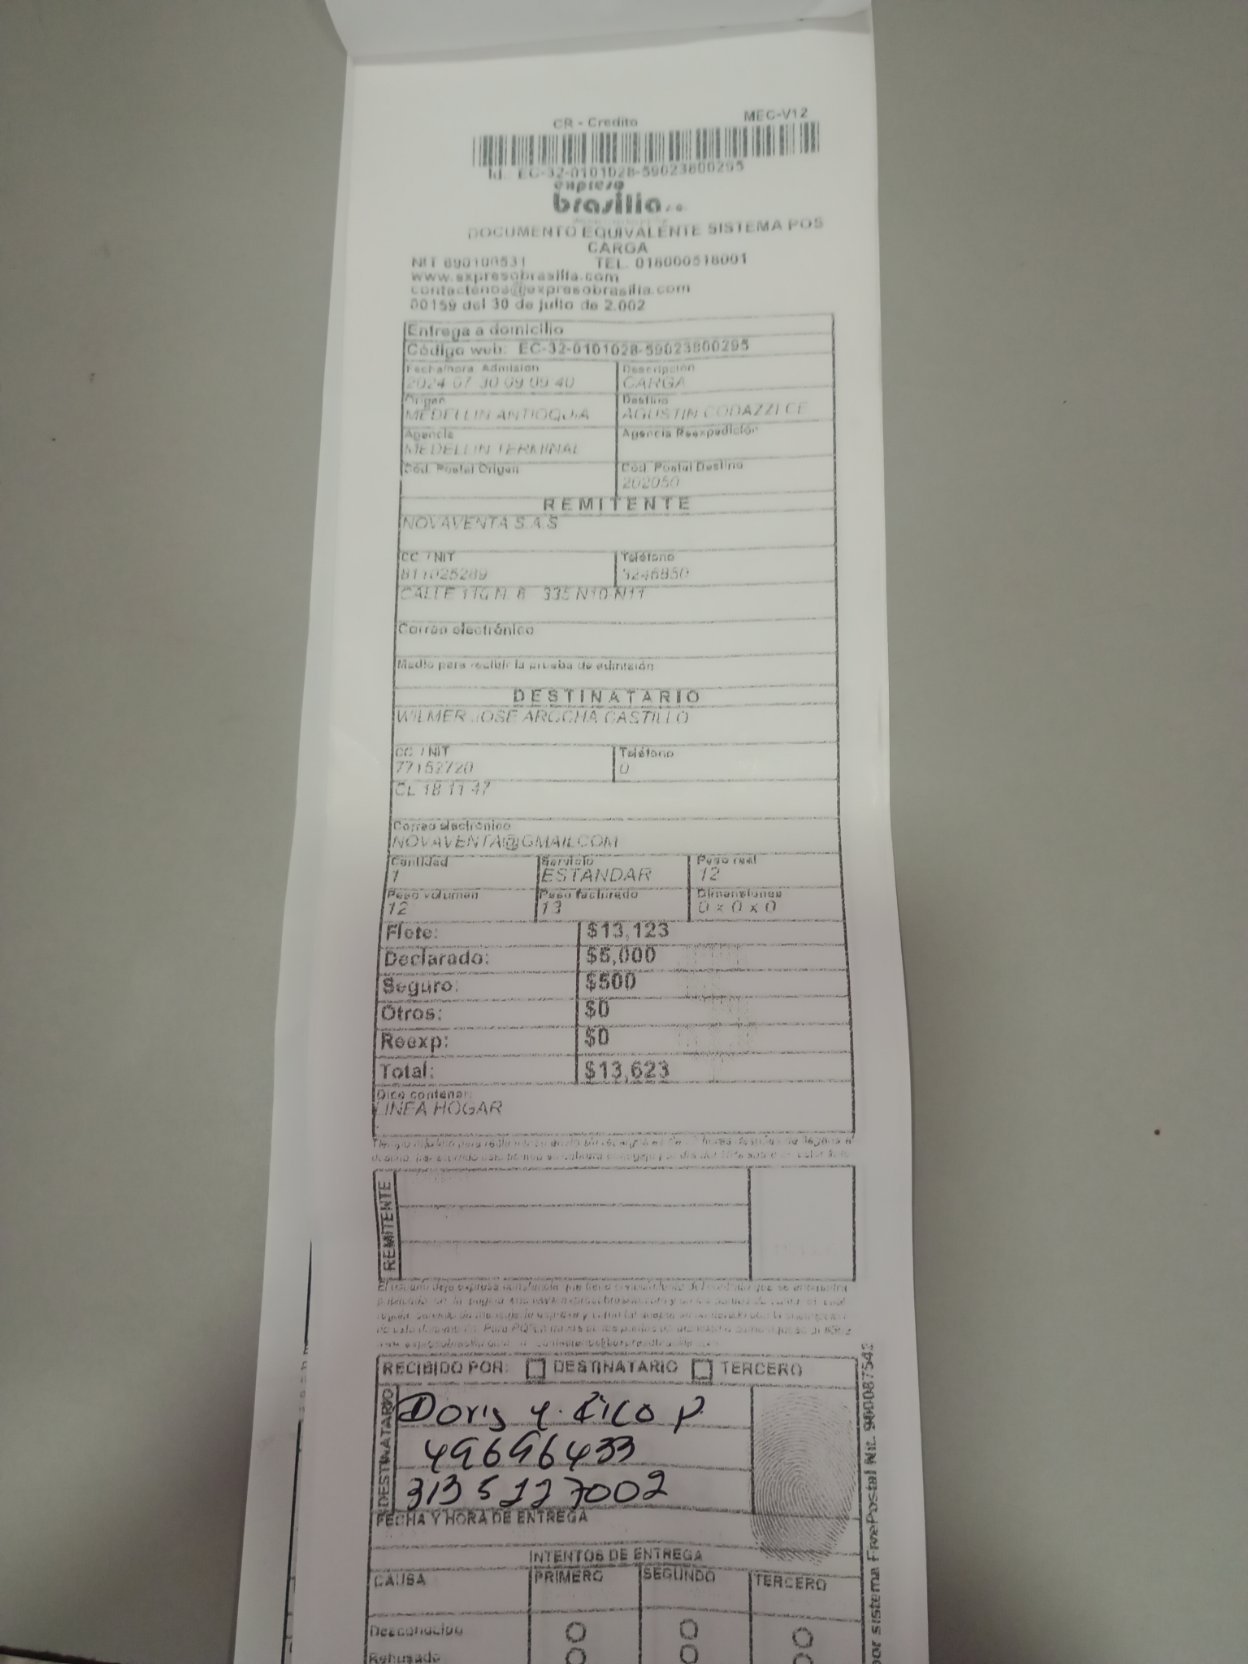 CR - Credito MEC-V12
Id. EC-32-0101028-59023800295
expreso
brasilia s.a
DOCUMENTO EQUIVALENTE SISTEMA POS
CARGA
NIT 890100531 TEL. 018000518001
www.expresobrasilia.com
contactenos@expresobrasilia.com
00159 del 30 de julio de 2.002
Entrega a domicilio
Código web: EC-32-0101028-59023800295
Fecha/hora Admisión Descripción
2024 07 30 09 09 40 CARGA
Origen Destino
MEDELLIN ANTIOQUIA AGUSTIN CODAZZI CE
Agencia Agencia Reexpedición
MEDELLIN TERMINAL
Cód. Postal Origen Cód. Postal Destino
202050
REMITENTE
NOVAVENTA S.A.S
CC / NIT Teléfono
811025289 5246850
CALLE 17G N. 8 335 N10-N11
Correo electrónico
Medio para recibir la prueba de admisión
DESTINATARIO
WILMER JOSE AROCHA CASTILLO
CC / NIT Teléfono
77152720 0
CL 18 11 47
Correo electrónico
NOVAVENTA@GMAIL.COM
Cantidad Servicio Peso real
1 ESTANDAR 12
Peso volumen Peso facturado Dimensiones
12 13 0 x 0 x 0
Flete: $13,123
Declarado: $5,000
Seguro: $500
Otros: $0
Reexp: $0
Total: $13,623
Dice contener:
LINEA HOGAR
REMITENTE
RECIBIDO POR: DESTINATARIO TERCERO
DESTINATARIO
Doris y. Rico P
49696433
3135227002
FECHA Y HORA DE ENTREGA
INTENTOS DE ENTREGA
CAUSA PRIMERO SEGUNDO TERCERO
Desconocido
Rehusado
por sistema FivePostal Nit. 900087543